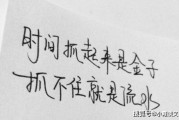 时间抓起来是金子
抓不住就是流水
搜狐号@小城说文